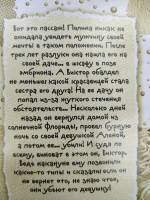 Вот это пассаж! Полина никак не
ожидала увидеть мужчину своей
мечты в таком положении. После
трех лет разлуки она нашла его на
своей даче... в шкафу в позе
эмбриона. А Виктор обалдел
не меньше: какой красавицей стала
сестра его друга! На ее дачу он
попал из-за жуткого стечения
обстоятельств... Несколько дней
назад он вернулся домой из
солнечной Флориды, провел бурную
ночь со своей девушкой Аленой,
а потом ее... убили! И судя по
всему, виноват в этом он, Виктор.
Ведь накануне ему позвонили
какие-то типы и сказали: если он
не вернет то, не знаю что,
они убьют его девушку!